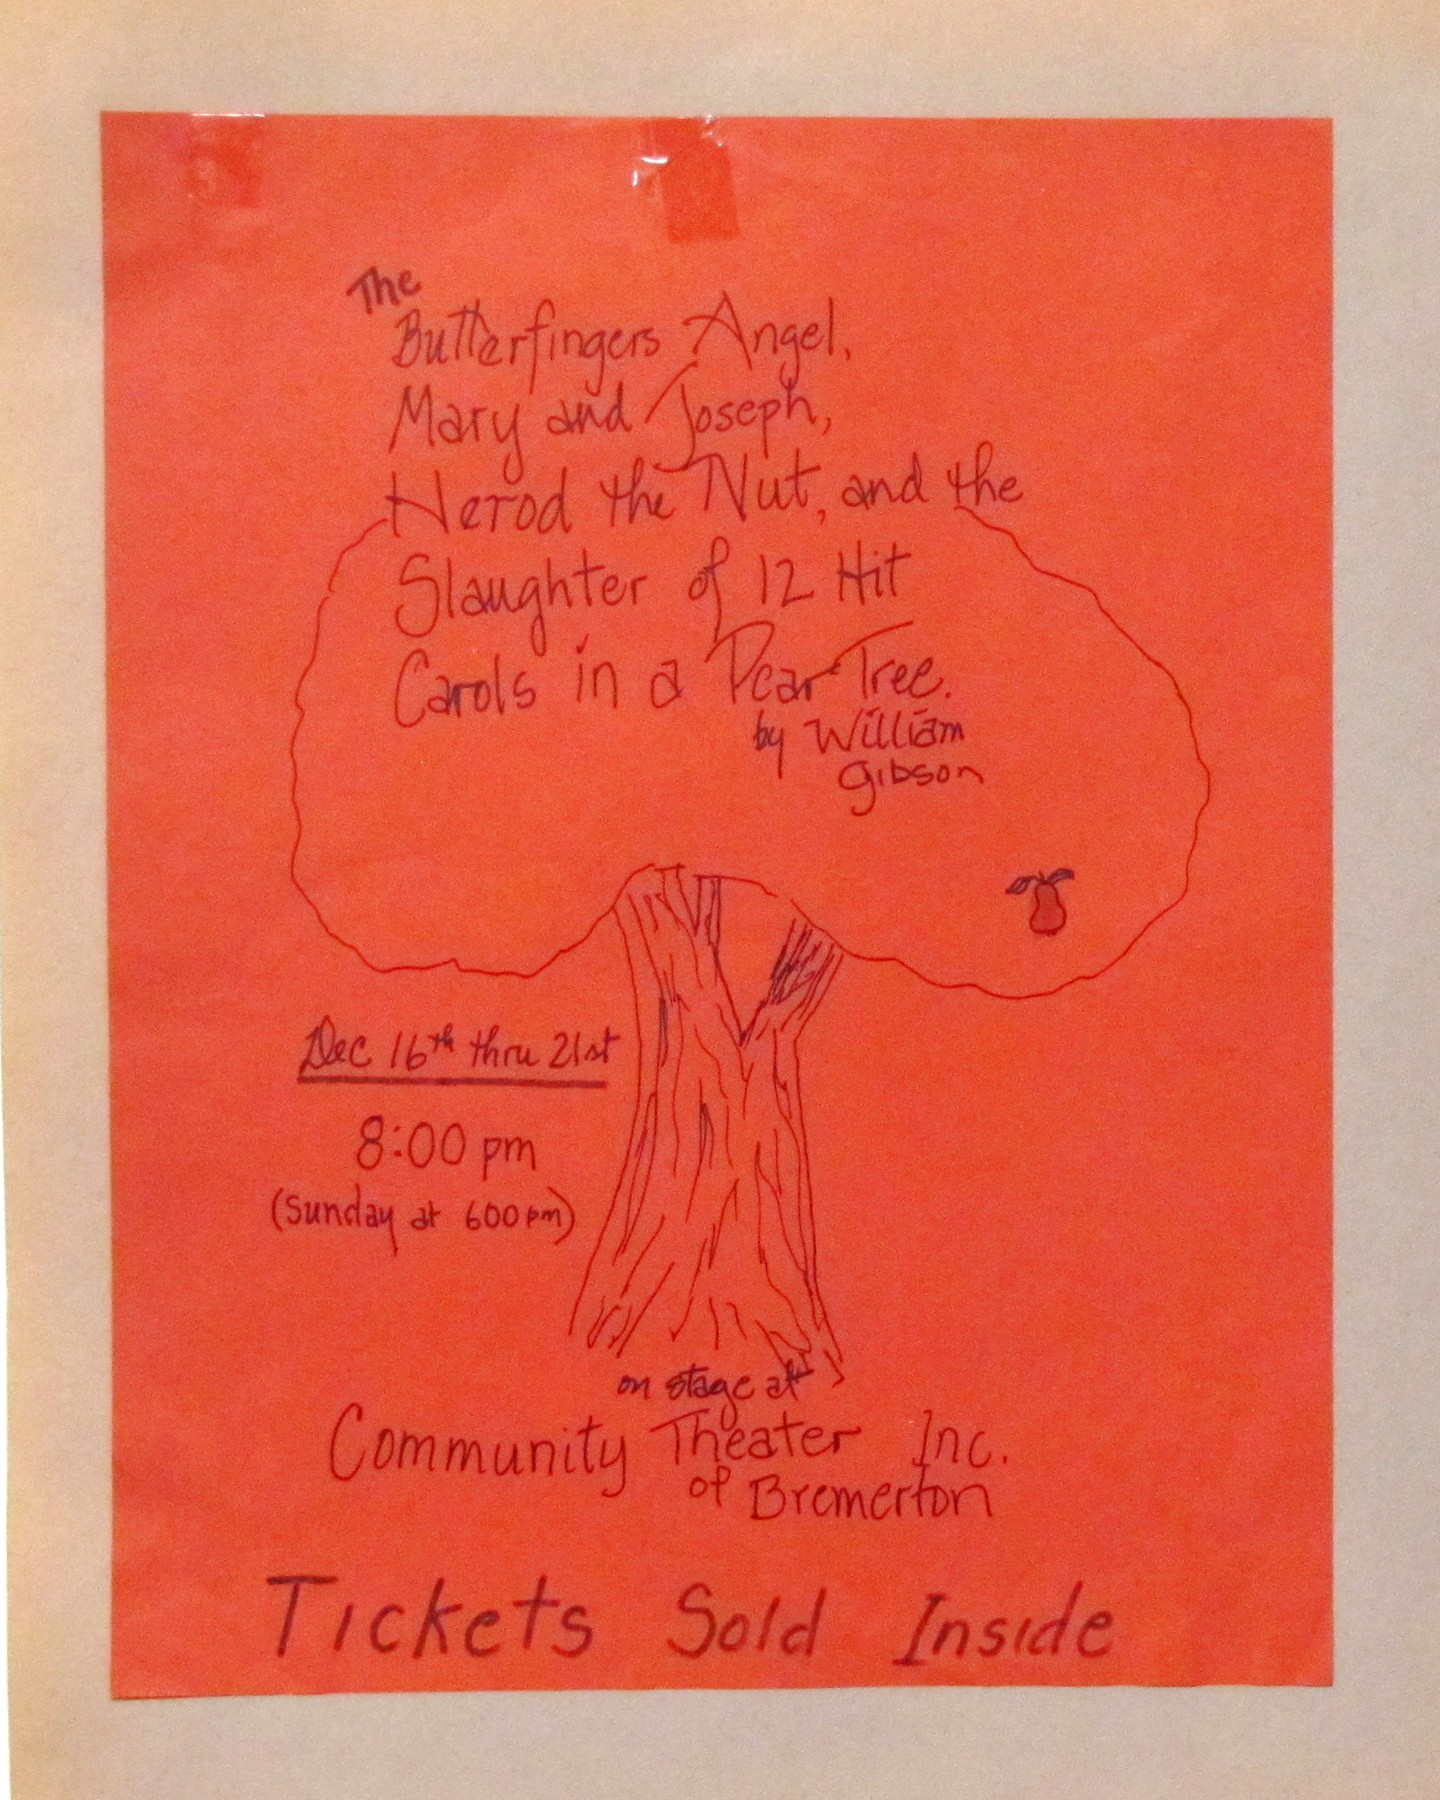 The
Butterfingers Angel,
Mary and Joseph,
Herod the Nut, and the
Slaughter of 12 Hit
Carols in a Pear Tree.
by William
Gibson
Dec 16th thru 21st
8:00 pm
(Sunday at 600 pm)
on stage at
Community Theater Inc.
of Bremerton
Tickets Sold Inside